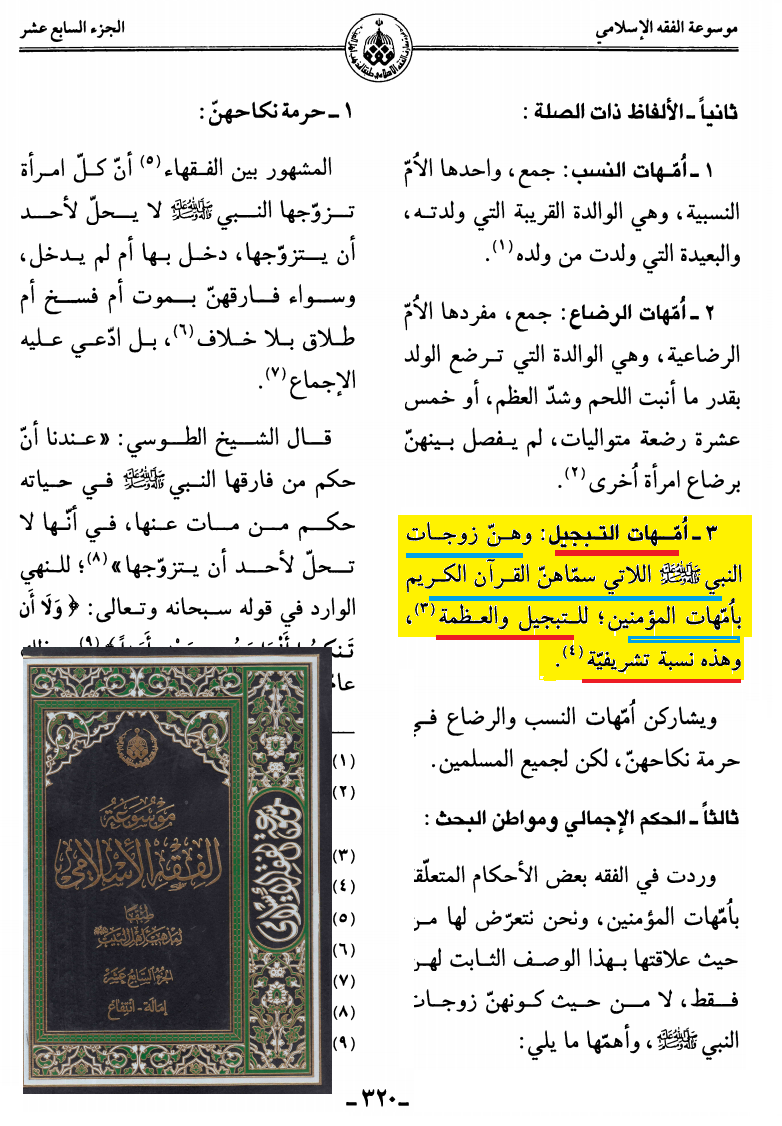 موسوعة الفقه الإسلامي
الجزء السابع عشر
ثانياً ـ الألفاظ ذات الصلة :
١ ـ أُمّهات النسب : جمع، واحدها الأُمّ
النسبية، وهي الوالدة القريبة التي ولدته،
والبعيدة التي ولدت من ولده(١).
٢ ـ أُمّهات الرضاع : جمع، مفردها الأُمّ
الرضاعية، وهي الوالدة التي تـرضع الولد
بقدر ما أنبت اللحم وشدّ العظم، أو خمس
عشرة رضعة متواليات، لم يـفصل بـينهنّ
برضاع امرأة أُخرى(٢).
٣ ـ أُمّـهات التـبجيل : وهـنّ زوجـات
النبي ﷺ اللاتي سمّاهنّ القـرآن الكـريم
بأُمّهات المؤمنين؛ للـتبجيل والعـظمة(٣)،
وهذه نسبة تشريفيّة(٤).
ويشاركن أُمّهات النسب والرضاع فـي
حرمة نكاحهنّ، لكن لجميع المسلمين.
ثالثاً ـ الحكم الإجمالي ومواطن البحث :
وردت في الفقه بعض الأحكام المتعلّقة
بأُمّهات المؤمنين، ونحن نتعرّض لها مـن
حيث علاقتها بـهذا الوصف الثـابت لهـن
فـقط، لا مـن حـيث كـونهنّ زوجـات
النبي ﷺ، وأهمّها ما يلي:
١ ـ حرمة نكاحهنّ :
المشهور بين الفـقهاء(٥) أنّ كـلّ امـرأة
تـزوّجها النـبي ﷺ لا يـحلّ لأحـد
أن يـتزوّجها، دخـل بـها أم لم يـدخل،
وسـواء فـارقهنّ بـموت أم فسـخ أم
طـلاق بـلا خـلاف(٦)، بـل ادّعـي عـليه
الإجماع(٧).
قـال الشـيخ الطـوسي: «عـندنا أنّ
حكم من فارقها النـبي ﷺ فـي حـياته
حكـم مـن مـات عـنها، فـي أنّـها لا
تـحلّ لأحـد أن يـتزوّجها»(٨)؛ للـنهي
الوارد في قوله سبحانه وتـعالى: ﴿ وَلَا أَن
(١)
(٢)
(٣)
(٤)
(٥)
(٦)
(٧)
(٨)
(٩)
موسوعة
الفقه الإسلامي
طبقاً
لمذهب أهل البيت
الجزء السابع عشر
إمالة - انتفاع
موسوعة الفقه الإسلامي
ـ ٣٢٠ ـ